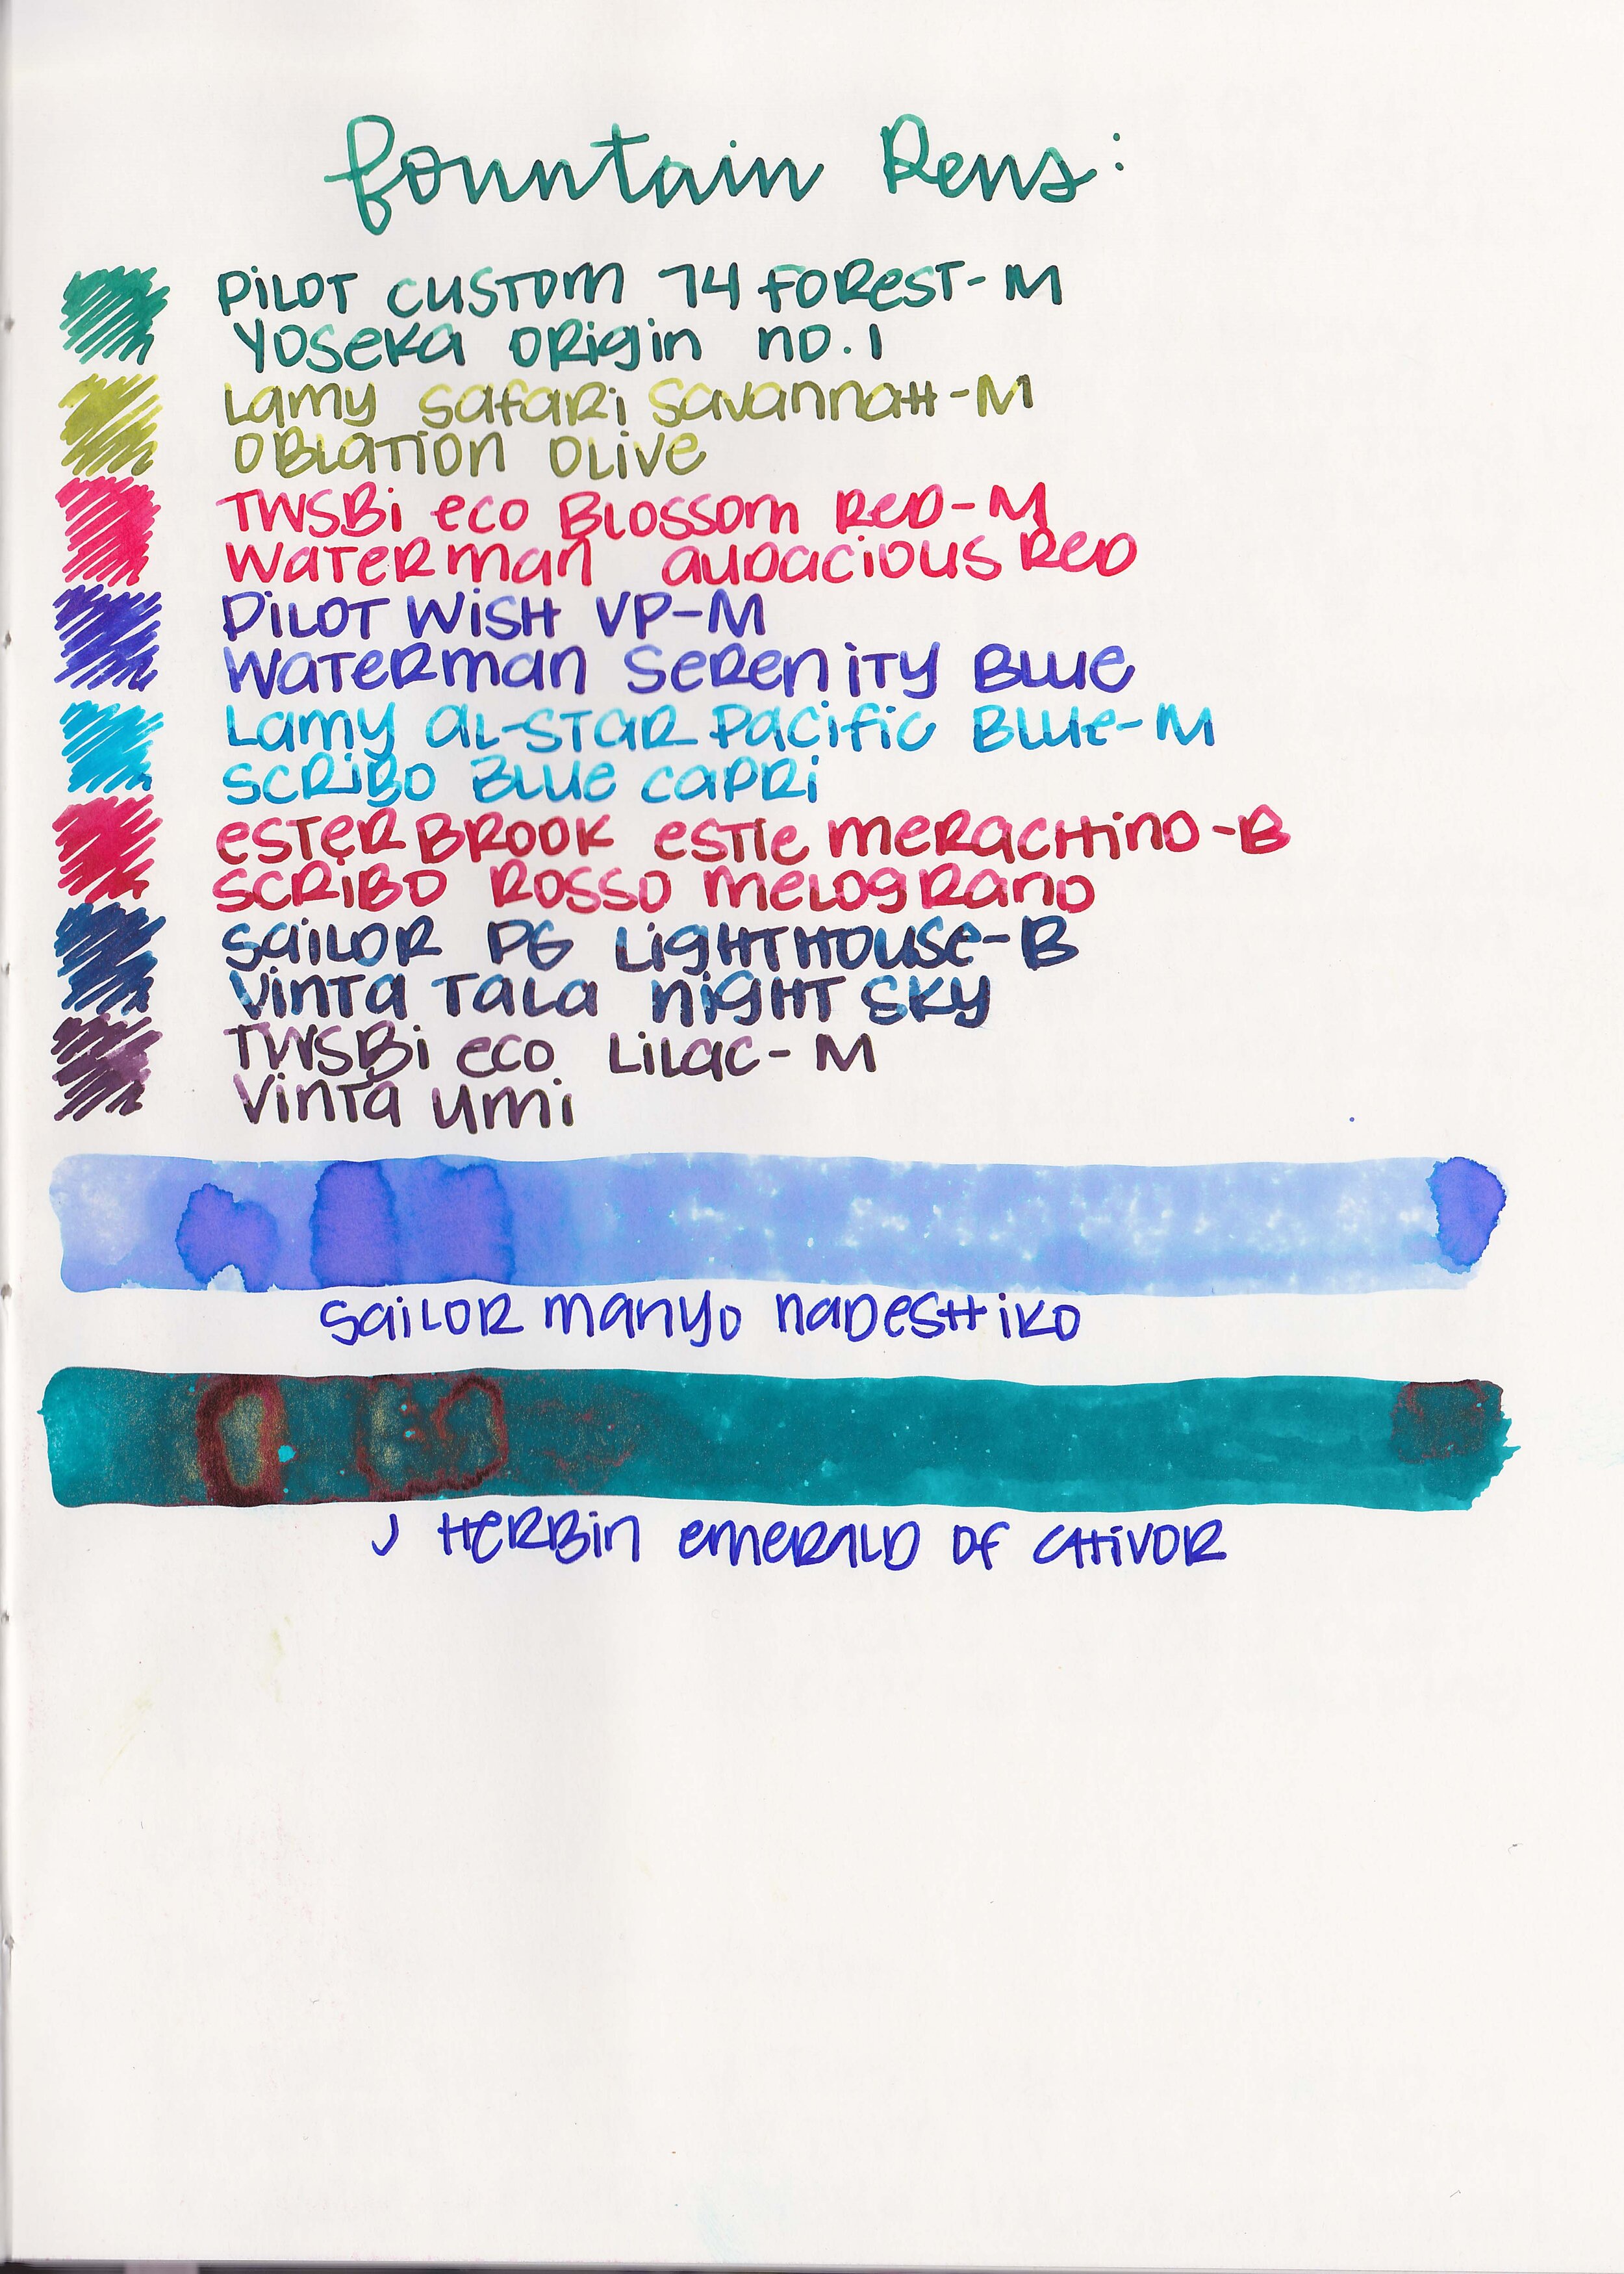 fountain Pens:
PILOT CUSTOM 74 FOREST-M
YOSEKA ORIGIN NO. 1
Lamy Safari Savannah-M
OBLATION OLIVE
TWSBi eco Blossom Red-M
Waterman audacious Red
PILOT WISH VP-M
Waterman Serenity Blue
Lamy al-star Pacific Blue-M
Scribo Blue Capri
esterbrook estie merachino-B
Scribo Rosso Melograno
Sailor PG Lighthouse-B
Vinta Tala night sky
TWSBi eco Lilac-M
Vinta Umi
Sailor manyo nadeshiko
J Herbin emerald of chivor